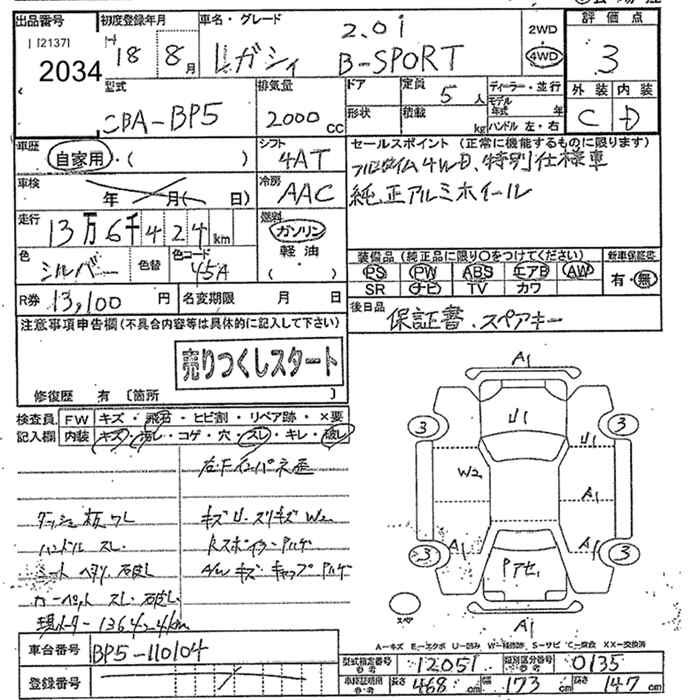 出品番号 初度登録年月 車名・グレード 2.0i 2WD 評価点
1 [2137] H 18 8月 レガシィ B-SPORT 4WD 3
2034
型式 排気量 ドア 定員 5人 ディーラー・並行 外装 内装
CBA-BP5 2000CC 形状 積載 kg モデル年式 年 C D
ハンドル 左・右
車歴 シフト セールスポイント (正常に機能するものに限ります)
自家用・( ) 4AT フルタイム4WD、特別仕様車
車検 冷房 純正アルミホイール
年 月( 日) AAC
走行 燃料
13万6千424km ガソリン
軽油
色 色替 色コード ( ) 装備品 (純正品に限り○をつけてください) 新車保証書
シルバー 45A PS PW ABS エアB AW 有・無
SR ナビ TV カワ
R券 13,100円 名変期限 月 日 後日品
保証書、スペアキー
注意事項申告欄(不具合内容等は具体的に記入して下さい)
売りつくしスタート
修復歴 有 〔箇所 〕
検査員 FW キズ・飛石・ヒビ割・リペア跡・×要
記入欄 内装 キズ・汚レ・コゲ・穴・スレ・キレ・破レ
右Fインパネ歪
ダッシュ板ワレ キズU・スリキズW2
ハンドルスレ Rスポイラーハゲ
シートヘタリ、破レ A/Wキズ キャップハゲ
カーペットスレ・破レ
現メーター136424km
A1
3 U1 3
U1
W2
A1
A1 A1
3 3
Pアセ
スペア
A1
A…キズ E…エクボ U…凹み W…補修跡 S…サビ C…腐食 XX…交換済
車台番号 BP5-110104
型式指定番号 参考 12051 類別区分番号 参考 0135
登録番号
車検証明用 参考 長さ 468cm 幅 173cm 高さ 147cm